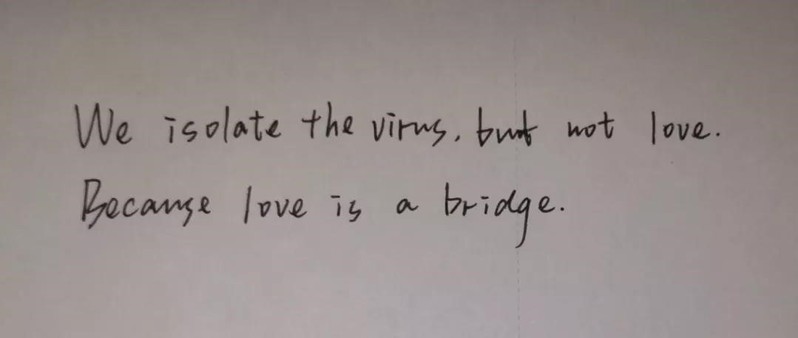 We isolate the virus, but not love.
Because love is a bridge.